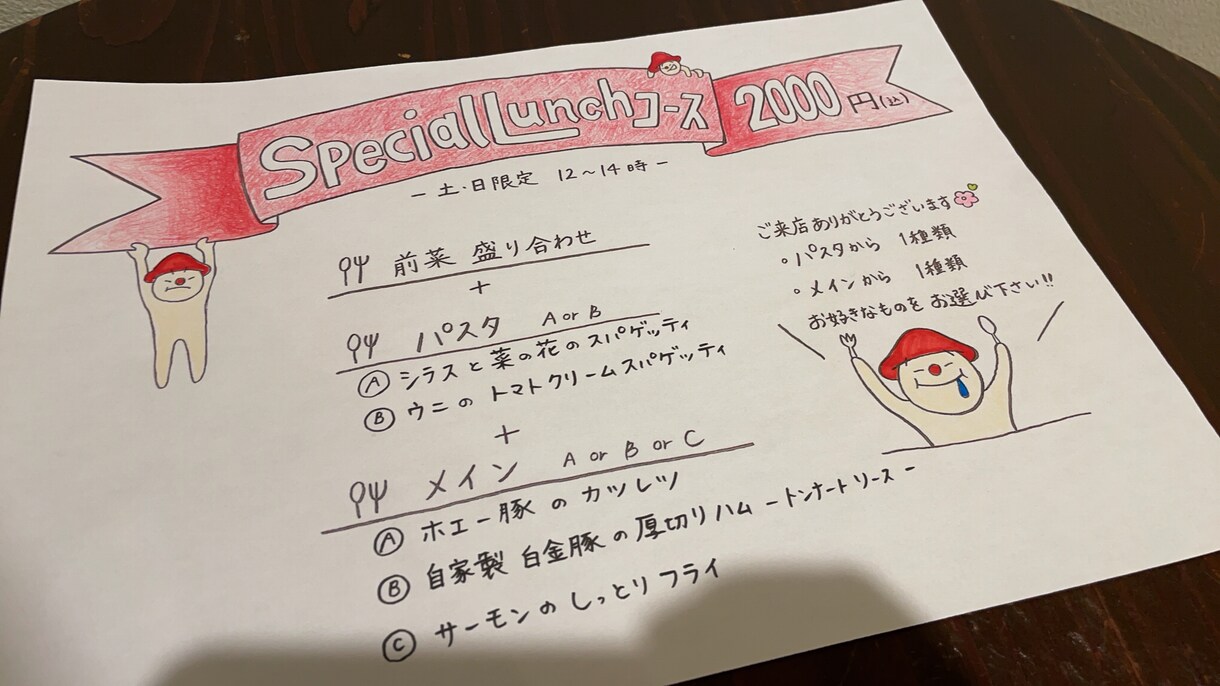 Special Lunch コース 2000円(込)
- 土・日限定 12~14時 -
前菜 盛り合わせ
+
パスタ A or B
Ⓐ シラスと菜の花のスパゲッティ
Ⓑ ウニのトマトクリームスパゲッティ
+
メイン A or B or C
Ⓐ ホエー豚のカツレツ
Ⓑ 自家製 白金豚の厚切りハム -トンナートソース-
Ⓒ サーモンのしっとりフライ
ご来店ありがとうございます
・パスタから 1種類
・メインから 1種類
お好きなものをお選び下さい!!